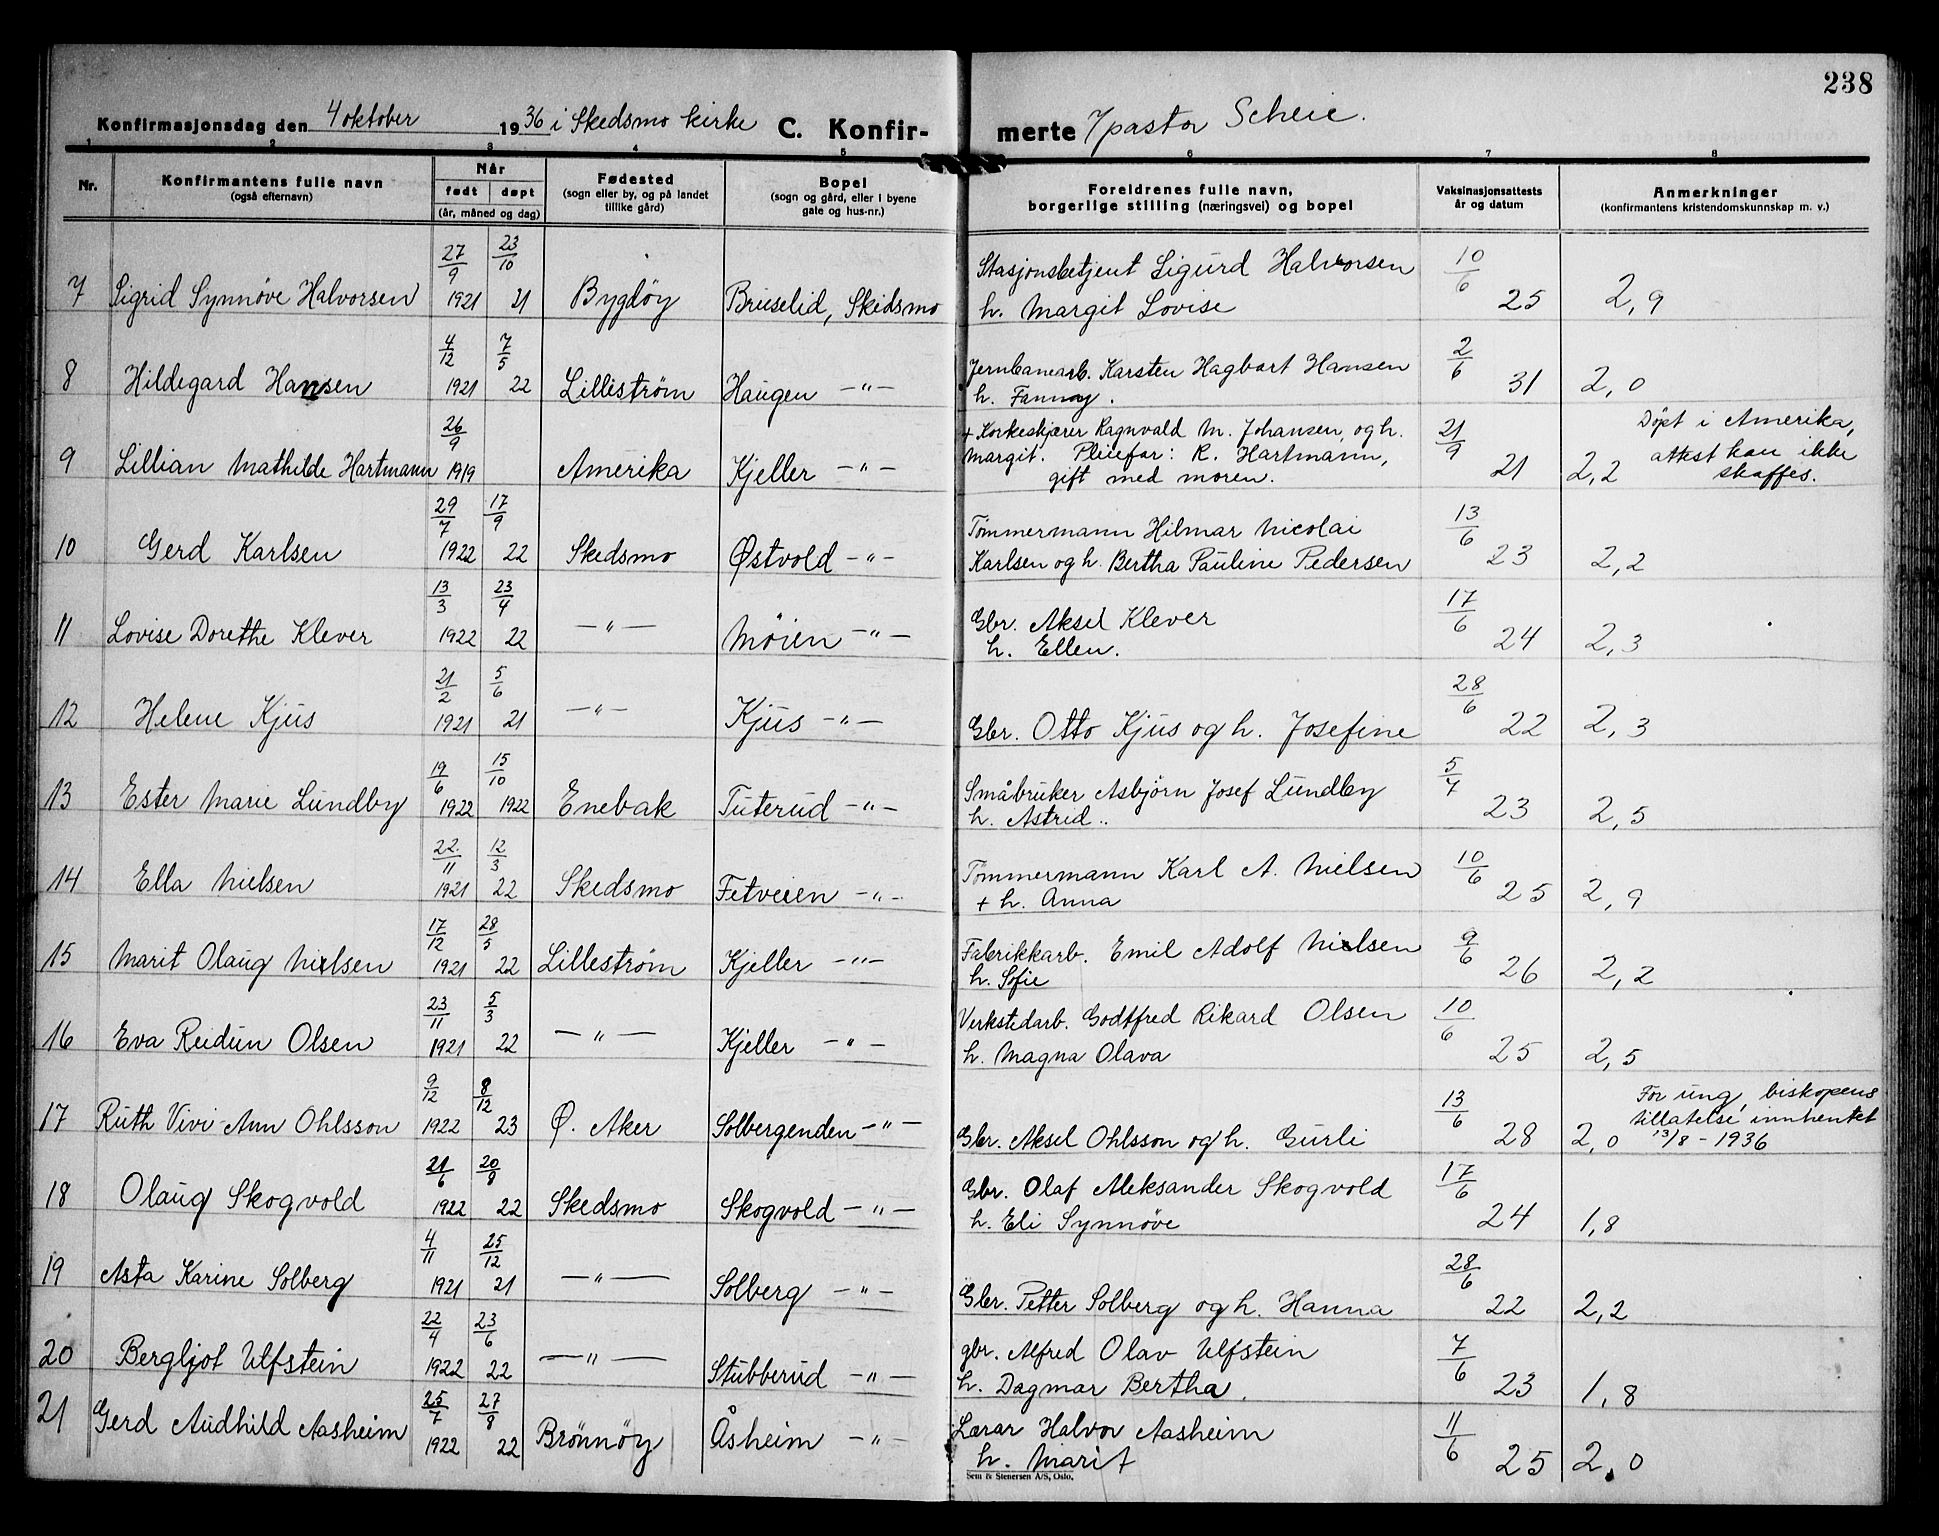 238
Konfirmasjonsdag den 4 oktober 1936 i Skedsmo kirke C. Konfir- merte / pastor Scheie.
1 2 3 4 5 6 7 8
Nr. Konfirmantens fulle navn (også efternavn) Når født døpt (år, måned og dag) Fødested (sogn eller by, og på landet tillike gård) Bopel (sogn og gård, eller i byene gate og hus-nr.) Foreldrenes fulle navn, borgerlige stilling (næringsvei) og bopel Vaksinasjonsattests år og datum Anmerkninger (konfirmantens kristendomskunnskap m. v.)
27/9 23/10 Stasjonsbetjent Sigurd Halvorsen 10/6
7 Sigrid Synnøve Halvorsen 1921 21 Bygdöy Bruselid, Skedsmo h. Margit Lovise 25 2,9
4/12 7/5 Jernbanearb. Karsten Hagbart Hansen 2/6
8 Hildegard Hansen 1921 22 Lilleström Haugen —"— h. Fanny. 31 2,0
26/9 + Korkeskjærer Ragnvald M. Johansen, og h. 21/9 Döpt i Amerika,
9 Lillian Mathilde Hartmann 1919 Amerika Kjeller —"— Margit. Pleiefar: R. Hartmann, 21 2,2 attest kan ikke
gift med moren. skaffes.
29/7 17/9 Tömmermann Hilmar Nicolai 13/6
10 Gerd Karlsen 1922 22 Skedsmo Østvold —"— Karlsen og h. Bertha Pauline Pedersen 23 2,2
13/3 23/4 Gbr. Aksel Klever 17/6
11 Lovise Dorethe Klever 1922 22 —"— Möien —"— h. Ellen. 24 2,3
21/2 5/6 28/6
12 Helene Kjus 1921 21 —"— Kjus —"— Gbr. Otto Kjus og h. Josefine 22 2,3
19/6 15/10 Småbruker Asbjörn Josef Lundby 5/7
13 Ester Marie Lundby 1922 1922 Enebak Tuterud —"— h. Astrid.. 23 2,5
22/11 12/3 Tömmermann Karl A. Nielsen 10/6
14 Ella Nielsen 1921 22 Skedsmo Fetveien —"— + h. Anna 25 2,9
17/12 28/5 Fabrikkarb. Emil Adolf Nielsen 9/6
15 Marit Olaug Nielsen 1921 22 Lilleström Kjeller —"— h. Sofie 26 2,2
23/11 5/3 Verkstedarb. Godtfred Rikard Olsen 10/6
16 Eva Reidun Olsen 1921 22 —"— Kjeller —"— h. Magna Olava 25 2,5
9/12 8/12 13/6 For ung, biskopens
17 Ruth Vivi-Ann Ohlsson 1922 23 Ø. Aker Solbergenden —"— Gbr. Aksel Ohlsson og h. Gurli 28 2,0 tillatelse innhentet
13/8 - 1936
21/6 20/8 Gbr. Olaf Aleksander Skogvold 17/6
18 Olaug Skogvold 1922 22 Skedsmo Skogvold —"— h. Eli Synnöve 24 1,8
4/11 25/12 28/6
19 Asta Karine Solberg 1921 21 —"— Solberg —"— Gbr. Petter Solberg og h. Hanna 22 2,2
22/4 23/6 gbr. Alfred Olav Ulfstein 7/6
20 Bergljot Ulfstein 1922 22 —"— Stubberud —"— h. Dagmar Bertha. 23 1,8
25/7 27/8 Lærar Halvor Aasheim 11/6
21 Gerd Audhild Aasheim 1922 22 Brönnöy Åsheim —"— h. Marit 25 2,0
Sem & Stenersen A/S, Oslo.